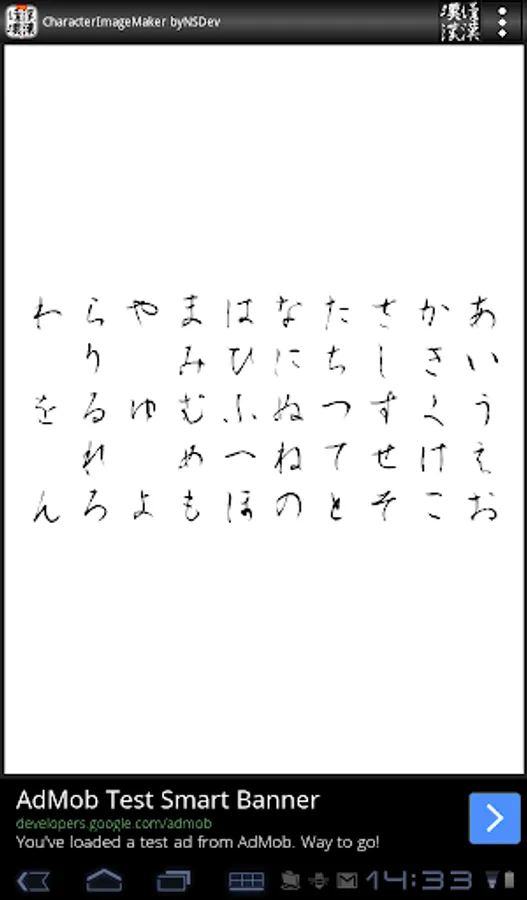 CharacterImageMaker byNSDev
あいうえお
かきくけこ
さしすせそ
たちつてと
なにぬねの
はひふへほ
まみむめも
やゆよ
らりるれろ
わをん
AdMob Test Smart Banner
developers.google.com/admob
You've loaded a test ad from AdMob. Way to go!
14:33